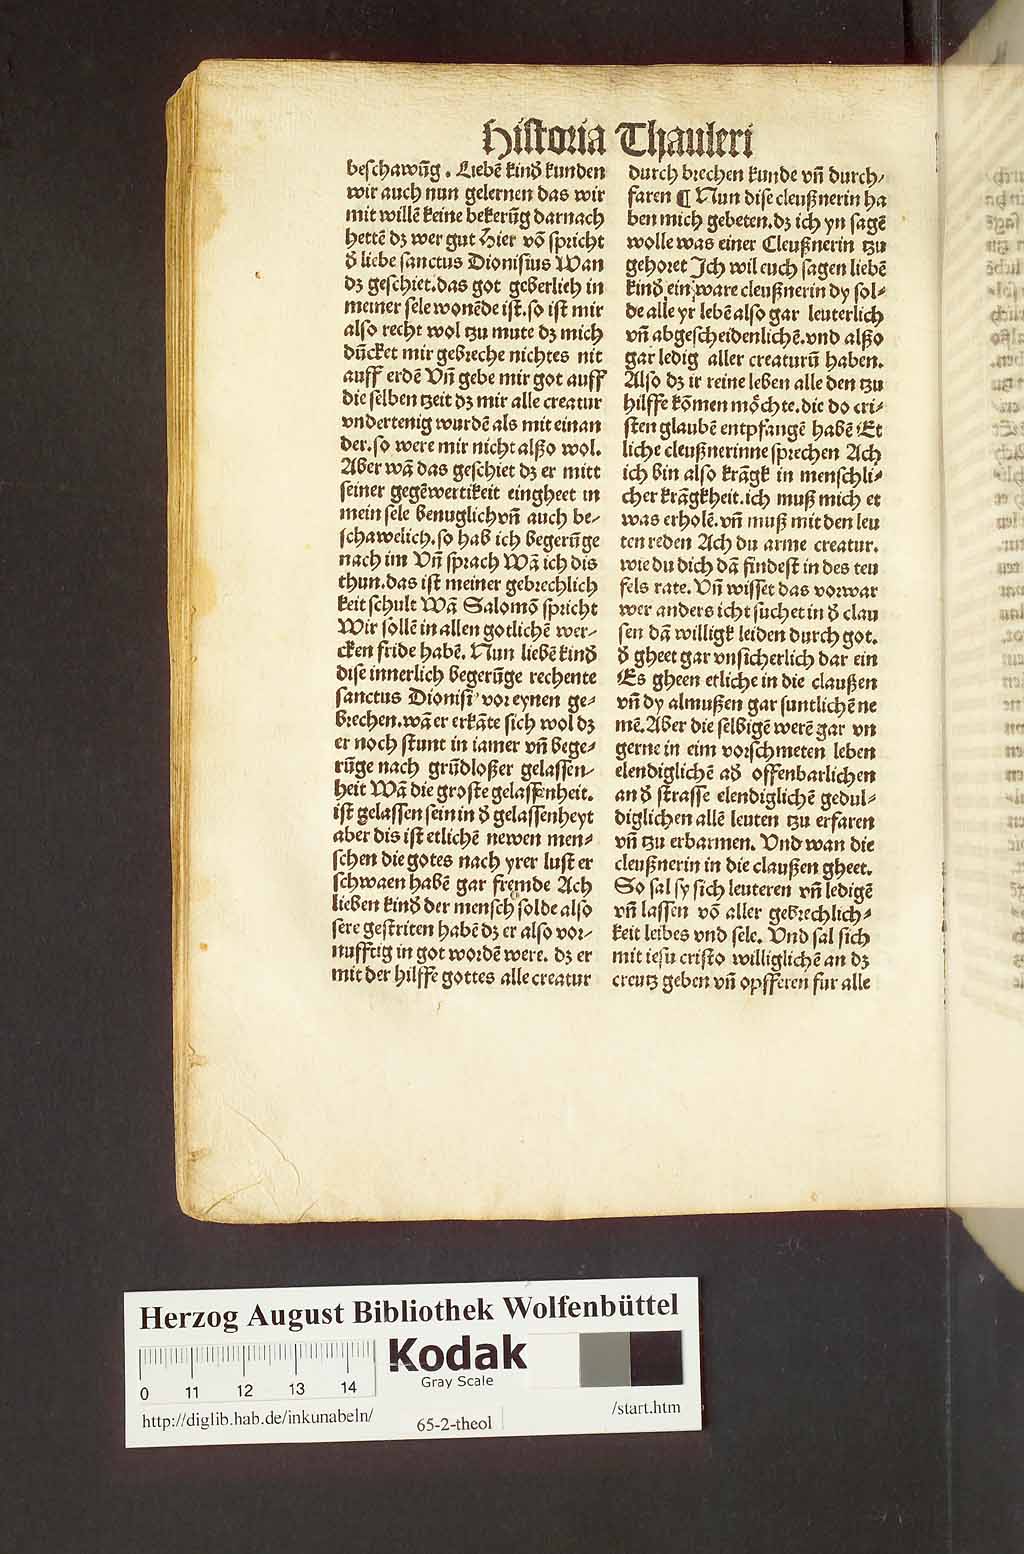 Historia Thauleri
beschawūg. Liebē kinđ kunden
wir auch nun gelernen das wir
mit willē keine bekerūg darnach
hettē dz wer gut Hier vō spricht
đ liebe sanctus Dionisius Wan
dz geschiet.das got geberlich in
meiner sele wonēde ist.so ist mir
also recht wol tzu mute dz mich
dūcket mir gebreche nichtes nit
auff erdē Vn̄ gebe mir got auff
die selben tzeit dz mir alle creatur
vndertenig wurdē als mit einan
der.so were mir nicht alßo wol.
Aber wā das geschiet dz er mitt
seiner gegēwertikeit eingheet in
mein sele benuglich vn̄ auch be-
schawelich.so hab ich begerūge
nach im Vn̄ sprach Wā ich dis
thun.das ist meiner gebrechlich
keit schult Wā Salomō spricht
Wir sollē in allen gotlichē wer-
cken fride habē. Nun liebē kinđ
dise innerlich begerūge rechente
sanctus Dionisi' vor eynen ge-
brechen.wā er erkāte sich wol dz
er noch stunt in iamer vn̄ bege-
rūge nach grūdloßer gelassen-
heit Wā die groste gelassenheit.
ist gelassen sein in đ gelassenheyt
aber dis ist etlichē newen men-
schen die gotes nach yrer lust er
schwaen habē gar fremde Ach
lieben kinđ der mensch solde also
sere gestriten habē dz er also vor-
nufftig in got wordē were. dz er
mit der hilffe gottes alle creatur
durch brechen kunde vn̄ durch-
faren ¶ Nun dise cleußnerin ha
ben mich gebeten.dz ich yn sagē
wolle was einer Cleußnerin tzu
gehoret Ich wil euch sagen liebē
kinđ ein ware cleußnerin dy sol-
de alle yr lebē also gar leuterlich
vn̄ abgescheidenlichē.vnd alßo
gar ledig aller creaturū haben.
Also dz ir reine leben alle den tzu
hilffe kōmen mǒchte.die do cri-
sten glaubē entpfangē habē Et
liche cleußnerinne sprechen Ach
ich bin also krāgk in menschli-
cher krāgkheit.ich muß mich et
was erholē.vn̄ muß mit den leu
ten reden Ach du arme creatur.
wie du dich dā findest in des teu
fels rate. Vn̄ wisset das vorwar
wer anders icht suchet in đ clau
sen dā willigk leiden durch got.
đ gheet gar vnsicherlich dar ein
Es gheen etliche in die claußen
vn̄ dy almußen gar suntlichē ne
mē.Aber die selbigē werē gar vn
gerne in eim vorschmeten leben
elendiglichē ađ offenbarlichen
an đ strasse elendiglichē gedul-
diglichen allē leuten tzu erfaren
vn̄ tzu erbarmen. Vnd wan die
cleußnerin in die claußen gheet.
So sal sy sich leuteren vn̄ ledigē
vn̄ lassen vō aller gebrechlich-
keit leibes vnd sele. Vnd sal sich
mit iesu cristo williglichē an dz
creutz geben vn̄ opfferen fur alle
Herzog August Bibliothek Wolfenbüttel
Kodak
Gray Scale
0 11 12 13 14
http://diglib.hab.de/inkunabeln/ 65-2-theol /start.htm